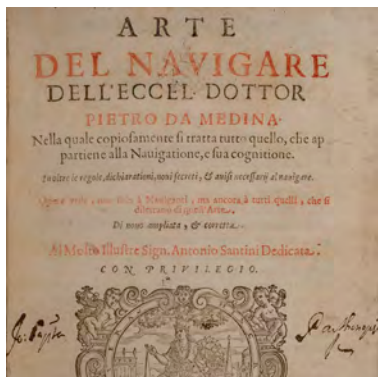 ARTE
DEL NAVIGARE
DELL'ECCEL. DOTTOR
PIETRO DA MEDINA.
Nella quale copiosamente si tratta tutto quello, che ap
partiene alla Nauigatione, e sua cognitione.
Inoltre le regole, dichiarationi, noui secreti, & auisi necessarij al nauigare.
Opera utile, non solo à Nauiganti, ma ancora à tutti quelli, che si
dilettano di quest'Arte.
Di nouo ampliata, & corretta.
Al Molto Illustre Sign. Antonio Santini Dedicata.
CON PRIVILEGIO.